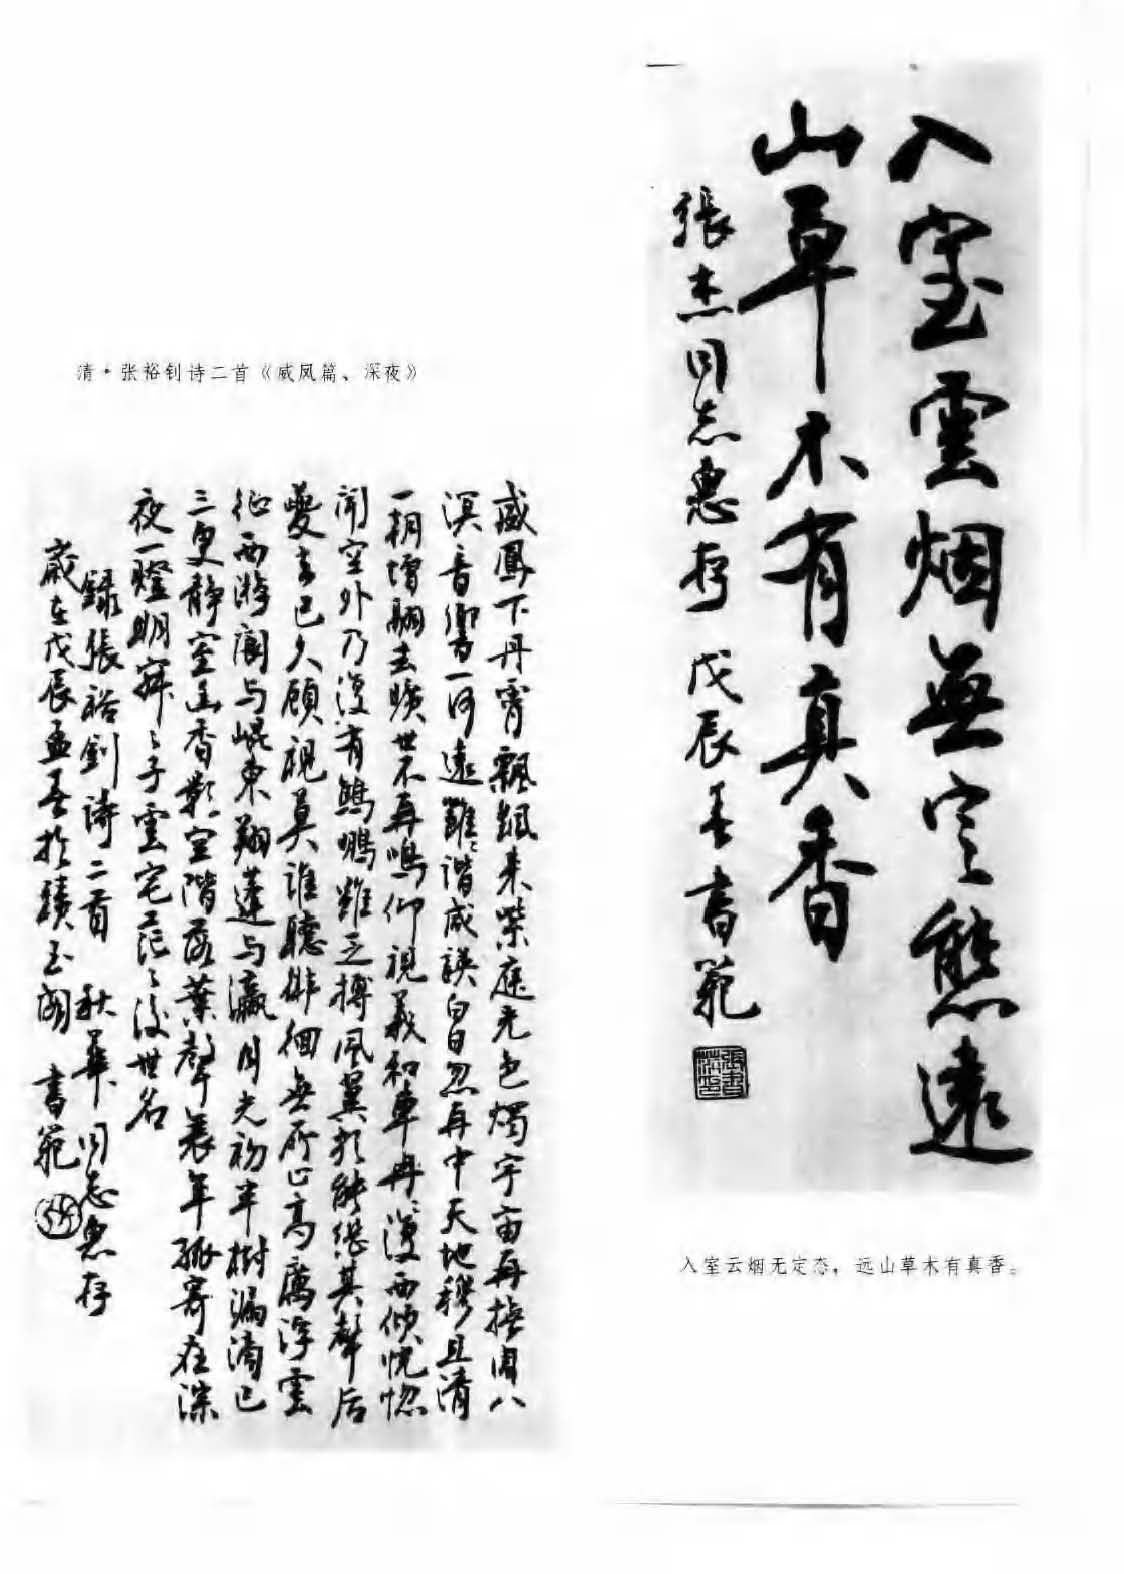 入室雲烟無定態遠
山草木有真香
張杰同志惠存 戊辰春書範
張書範印
入室云烟无定态，远山草木有真香。
清·张裕钊诗二首《威凤篇、深夜》
威鳳下丹霄飄飖来紫庭光色燭宇宙再撫周八
溟音響一何遠雝々諧咸韺白日忽再中天地穆且清
一朝增翮去曠世不再鳴仰視羲和車冉々復西傾恍惚
聞空外乃復有鷦鵬雖乏搏風翼 能繼其聲后
夔去已久顧視莫誰聽徘徊無所止高厲浮雲
征西游閬与崐東翔蓬与瀛月光初半樹漏滴已
三更静室幽香影空階落葉聲衰年孤寄在深
夜一燈明寂々子雲宅茫々後世名
録張裕釗诗二首 秋華同志惠存
歲在戊辰孟春於 玉阁 書範